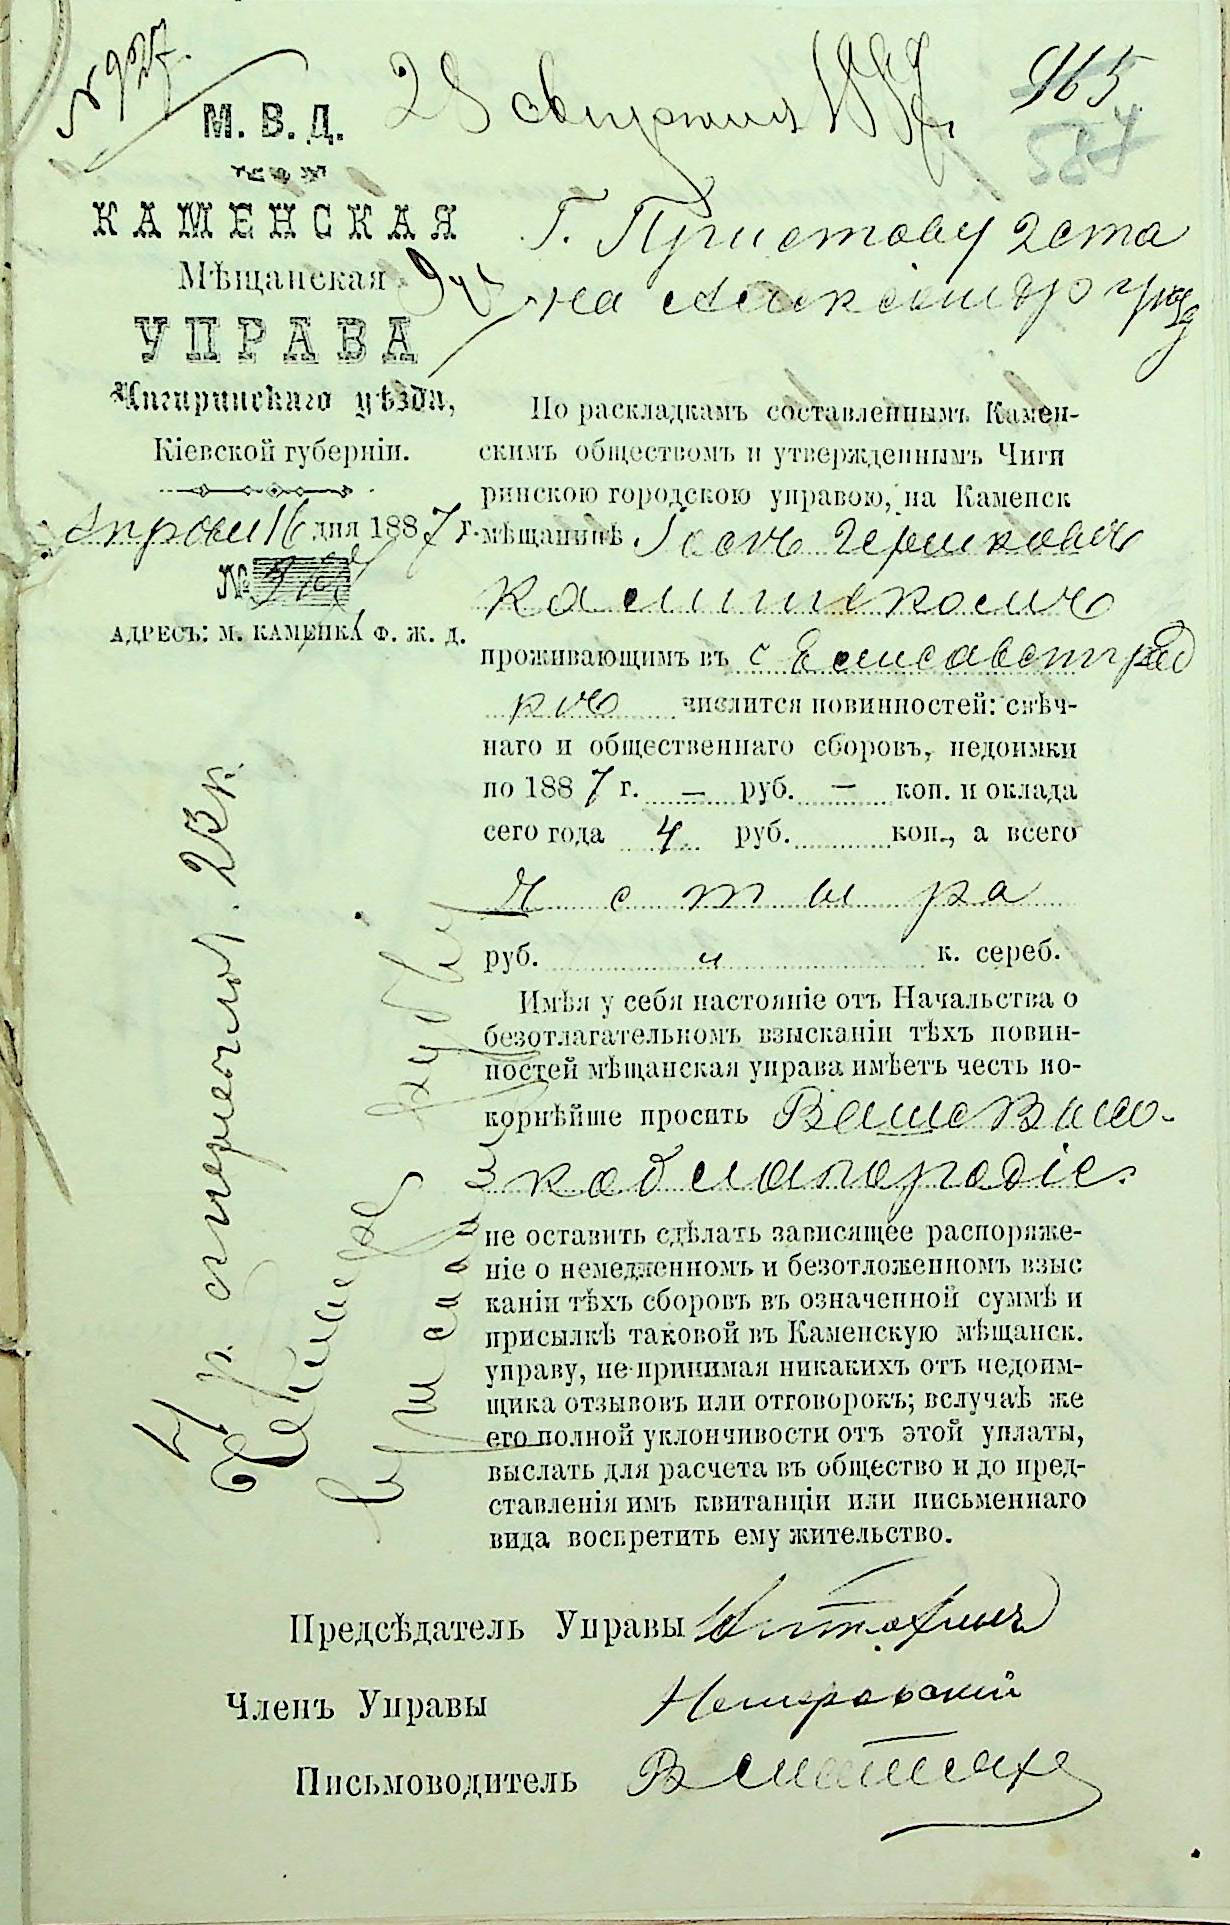 № 927.
28 апреля 1887 г.
965
584
М. В. Д.
КАМЕНСКАЯ
Мѣщанская
УПРАВА
Чигиринскаго уѣзда,
Кіевской губерніи.
Апреля 16 дня 1887 г.
№
АДРЕСЪ: М. КАМЕНКА Ф. Ж. Д.
Г. Приставу 2 ста
на Александр уезд
По раскладкамъ составленнымъ Камен-
скимъ обществомъ и утвержденнымъ Чиги
ринскою городскою управою, на Каменск
мѣщанинѣ Гершковичъ
проживающимъ въ с Елисаветград
кѣ числится повинностей: свѣч-
наго и общественнаго сборовъ, недоимки
по 1887 г. — руб. — коп. и оклада
сего года 4 руб. коп., а всего
четыра
руб. „ к. сереб.
Имѣя у себя настояніе отъ Начальства о
безотлагательномъ взысканіи тѣхъ повин-
ностей мѣщанская управа имѣетъ честь по-
корнѣйше просить Ваше Высо-
коблагородіе
не оставить сдѣлать зависящее распоряже-
ніе о немедленномъ и безотложенномъ взыс
каніи тѣхъ сборовъ въ означенной суммѣ и
присылкѣ таковой въ Каменскую мѣщанск.
управу, не принимая никакихъ отъ недоим-
щика отзывовъ или отговорокъ; вслучаѣ же
его полной уклончивости отъ этой уплаты,
выслать для расчета въ общество и до пред-
ставленія имъ квитанціи или письменнаго
вида воспретить ему жительство.
Предсѣдатель Управы
Членъ Управы
Письмоводитель
4 р. 23 к.